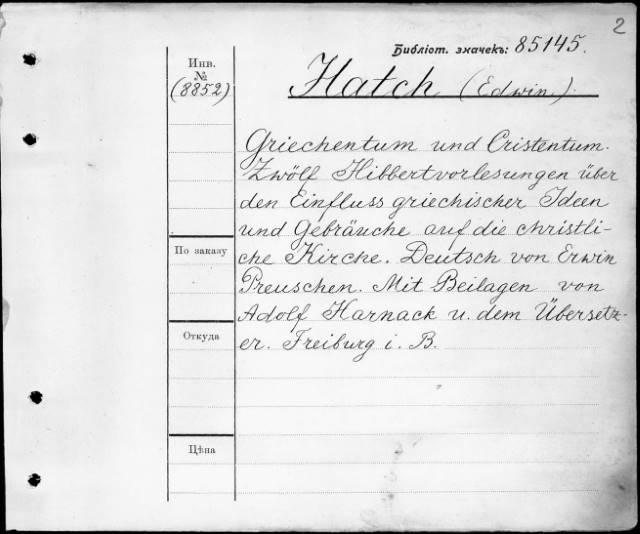 2
Библіот. значекъ: 85145.
Инв.
№
(8852)
Hatch (Edwin.)
Griechentum und Cristentum.
Zwölf Hibbertvorlesungen über
den Einfluss griechischer Ideen
und Gebräuche auf die christli-
che Kirche. Deutsch von Erwin
Preuschen. Mit Beilagen von
Adolf Harnack u. dem Übersetz-
er. Freiburg i. B.
По заказу
Откуда
Цѣна